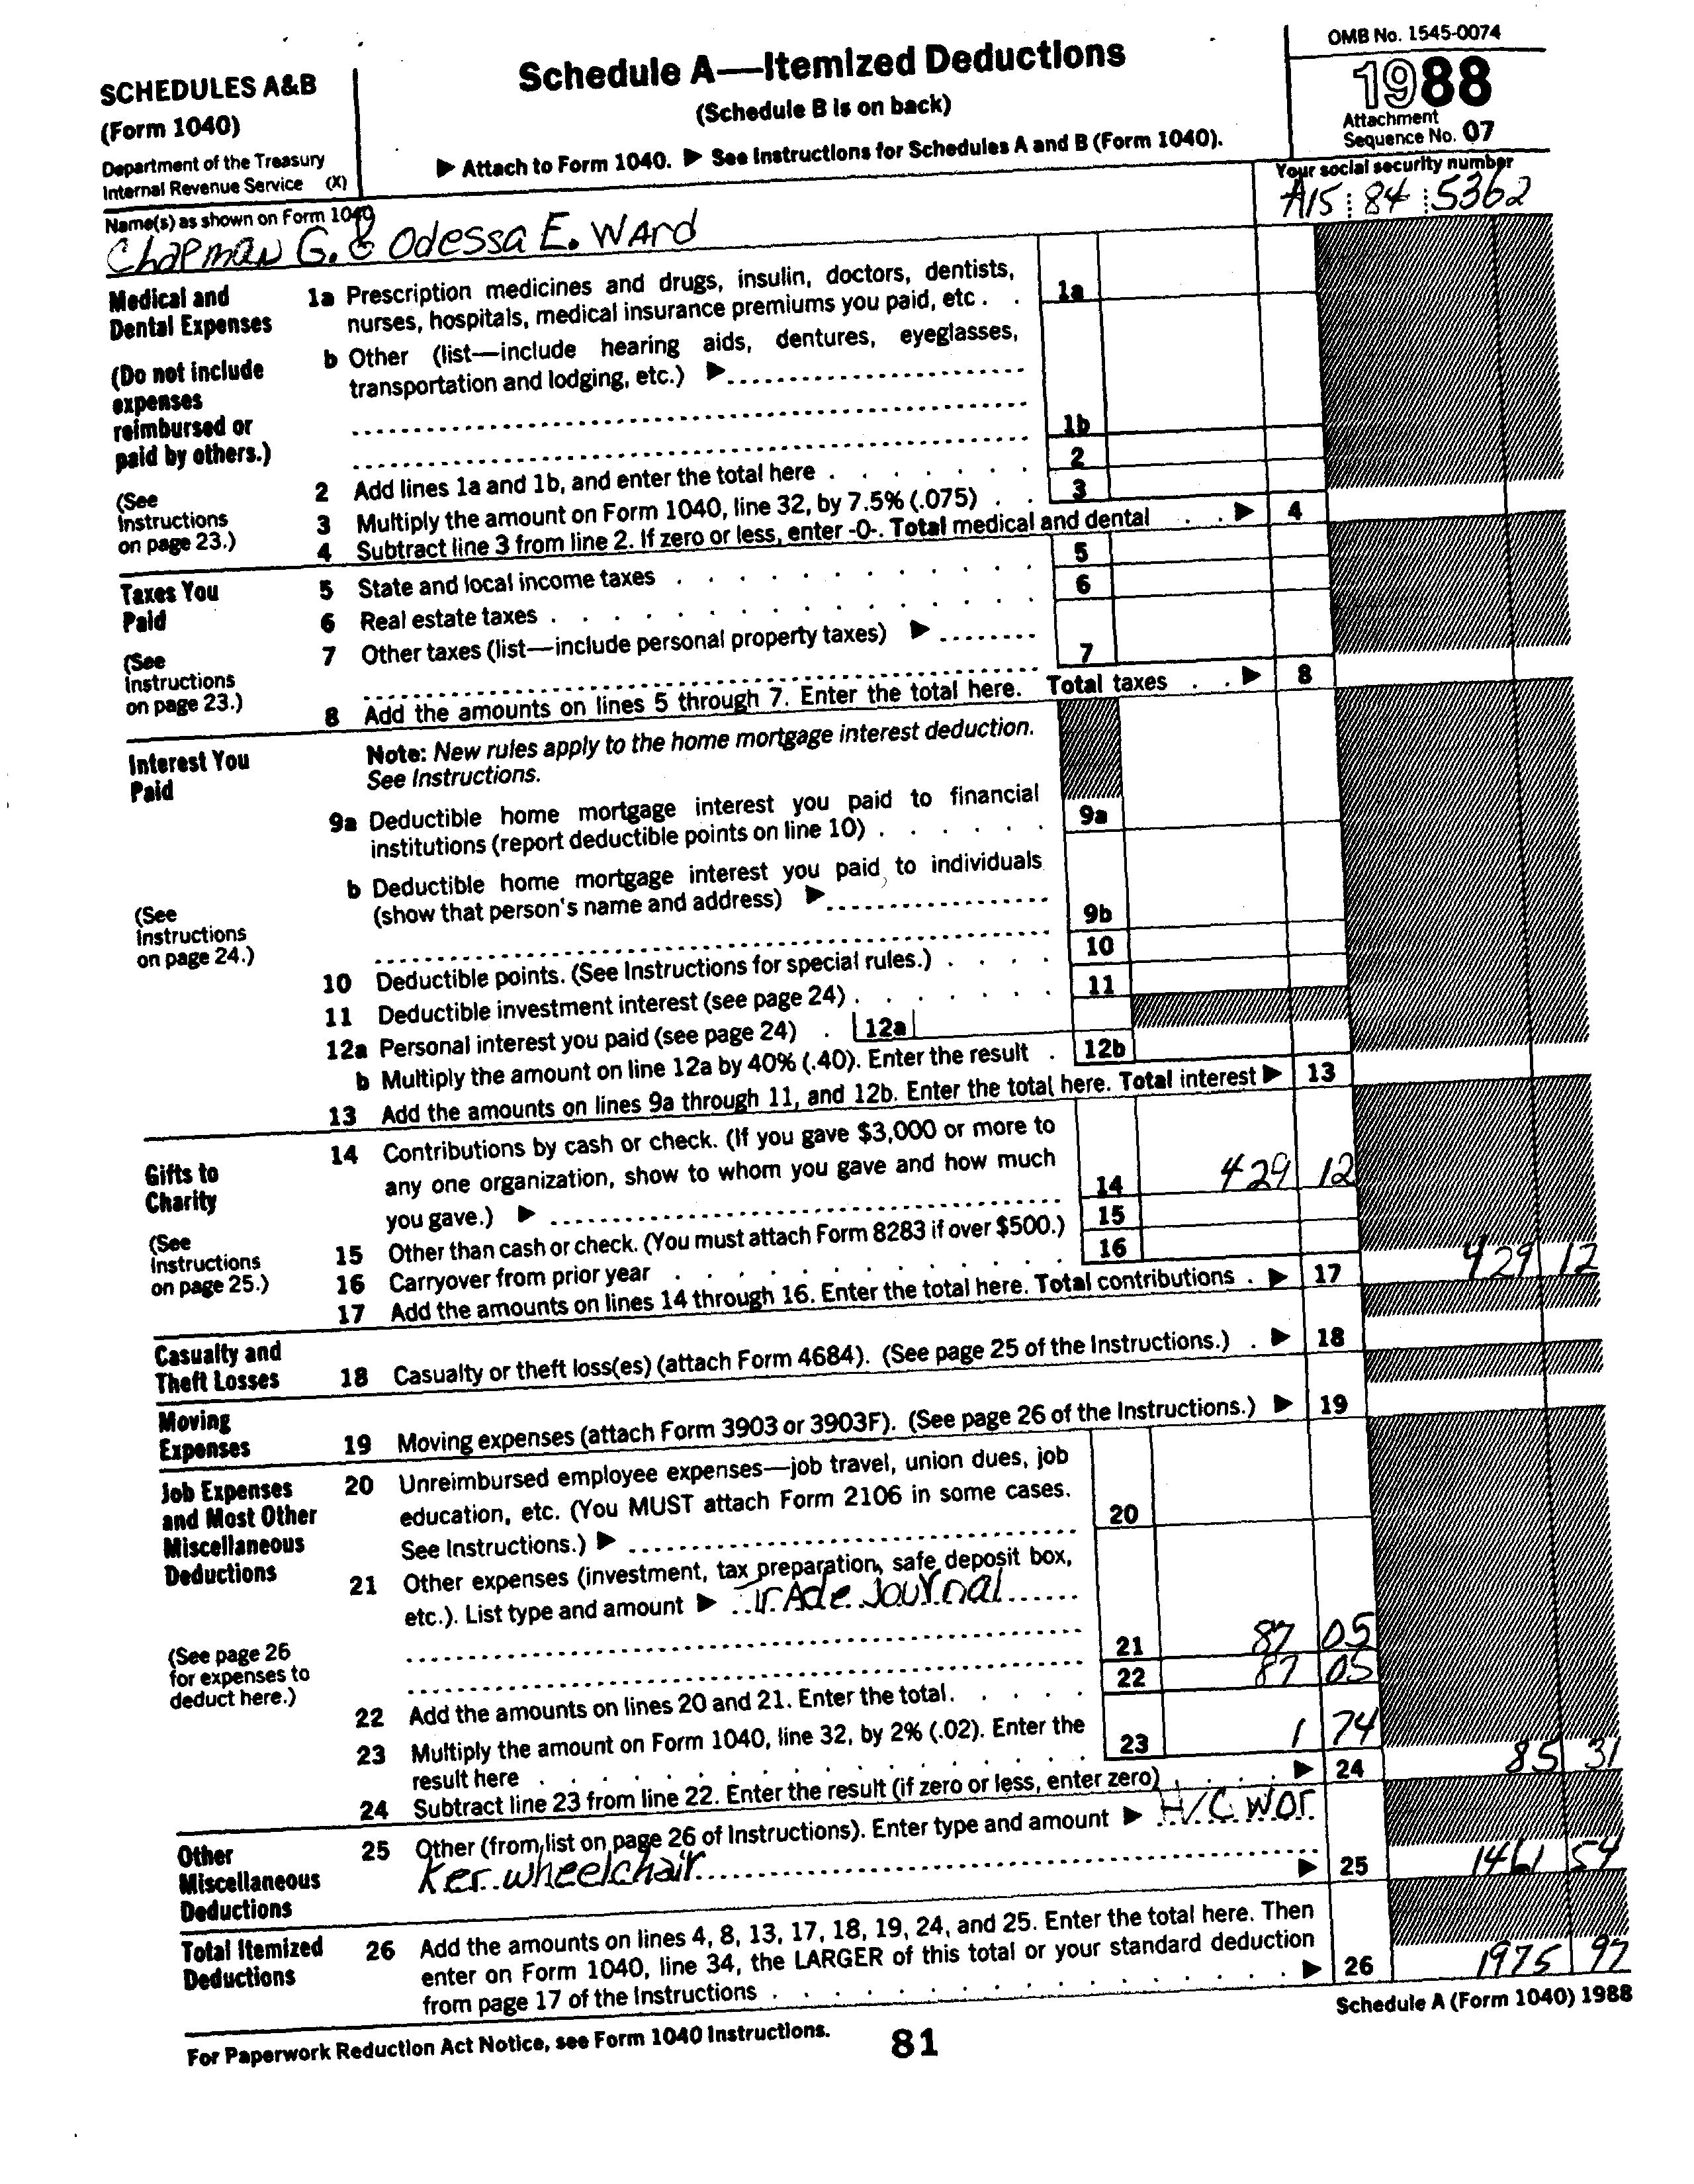 OMB No. 1545-0074
SCHEDULES A&B
(Form 1040)
Department of the Treasury
Internal Revenue Service (X)
Schedule A—Itemized Deductions
(Schedule B is on back)
▶ Attach to Form 1040. ▶ See Instructions for Schedules A and B (Form 1040).
1988
Attachment
Sequence No. 07
Name(s) as shown on Form 1040
Chapman G. & Odessa E. Ward
Your social security number
A15 84 5362
Medical and
Dental Expenses
(Do not include
expenses
reimbursed or
paid by others.)
(See
Instructions
on page 23.)
1a Prescription medicines and drugs, insulin, doctors, dentists,
nurses, hospitals, medical insurance premiums you paid, etc . . 1a
b Other (list—include hearing aids, dentures, eyeglasses,
transportation and lodging, etc.) ▶
1b
2 Add lines 1a and 1b, and enter the total here . . . . . . . 2
3 Multiply the amount on Form 1040, line 32, by 7.5% (.075) . . 3
4 Subtract line 3 from line 2. If zero or less, enter -0-. Total medical and dental . . ▶ 4
Taxes You
Paid
(See
Instructions
on page 23.)
5 State and local income taxes . . . . . . . . . . . . 5
6 Real estate taxes . . . . . . . . . . . . . . . 6
7 Other taxes (list—include personal property taxes) ▶
7
8 Add the amounts on lines 5 through 7. Enter the total here. Total taxes . . ▶ 8
Interest You
Paid
(See
Instructions
on page 24.)
Note: New rules apply to the home mortgage interest deduction.
See Instructions.
9a Deductible home mortgage interest you paid to financial
institutions (report deductible points on line 10) . . . . . . 9a
b Deductible home mortgage interest you paid to individuals
(show that person's name and address) ▶
9b
10 Deductible points. (See Instructions for special rules.) . . . . 10
11 Deductible investment interest (see page 24) . . . . . . . 11
12a Personal interest you paid (see page 24) . 12a
b Multiply the amount on line 12a by 40% (.40). Enter the result . 12b
13 Add the amounts on lines 9a through 11, and 12b. Enter the total here. Total interest ▶ 13
Gifts to
Charity
(See
Instructions
on page 25.)
14 Contributions by cash or check. (If you gave $3,000 or more to
any one organization, show to whom you gave and how much
you gave.) ▶ 14 429 12
15 Other than cash or check. (You must attach Form 8283 if over $500.) 15
16 Carryover from prior year . . . . . . . . . . . . 16
17 Add the amounts on lines 14 through 16. Enter the total here. Total contributions . ▶ 17 429 12
Casualty and
Theft Losses
18 Casualty or theft loss(es) (attach Form 4684). (See page 25 of the Instructions.) . ▶ 18
Moving
Expenses
19 Moving expenses (attach Form 3903 or 3903F). (See page 26 of the Instructions.) ▶ 19
Job Expenses
and Most Other
Miscellaneous
Deductions
(See page 26
for expenses to
deduct here.)
20 Unreimbursed employee expenses—job travel, union dues, job
education, etc. (You MUST attach Form 2106 in some cases.
See Instructions.) ▶ 20
21 Other expenses (investment, tax preparation, safe deposit box,
etc.). List type and amount ▶ Trade Journal
21 87 05
22 Add the amounts on lines 20 and 21. Enter the total. . . . . 22 87 05
23 Multiply the amount on Form 1040, line 32, by 2% (.02). Enter the
result here . . . . . . . . . . . . . . . 23 1 74
24 Subtract line 23 from line 22. Enter the result (if zero or less, enter zero) . . . . ▶ 24 85 31
Other
Miscellaneous
Deductions
25 Other (from list on page 26 of Instructions). Enter type and amount ▶ H/C wor
ker wheelchair ▶ 25 1461 54
Total Itemized
Deductions
26 Add the amounts on lines 4, 8, 13, 17, 18, 19, 24, and 25. Enter the total here. Then
enter on Form 1040, line 34, the LARGER of this total or your standard deduction
from page 17 of the Instructions . . . . . . . . . . . . . . ▶ 26 1975 97
For Paperwork Reduction Act Notice, see Form 1040 Instructions.
81
Schedule A (Form 1040) 1988